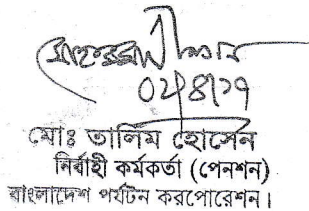 মোঃ তালিম হোসেন
নির্বাহী কর্মকর্তা (পেনশন)
বাংলাদেশ পর্যটন করপোরেশন।